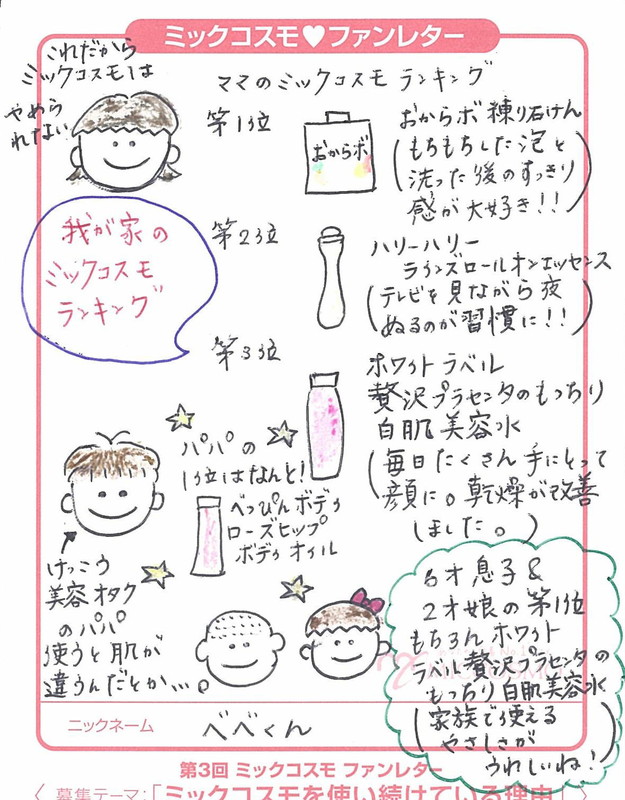 ミックコスモ♥ファンレター
これだから
ミックコスモは
やめら
れない
ママのミックコスモ ランキング
第1位
おからボ
おからボ 練り石けん
(もちもちした泡と
洗った後のすっきり
感が大好き!!)
我が家の
ミックコスモ
ランキング
第2位
ハリーハリー
ラウンズロールオンエッセンス
(テレビを見ながら夜
ぬるのが習慣に!!)
第3位
ホワイト ラベル
贅沢プラセンタのもっちり
白肌美容水
(毎日たくさん手にとって
顔に。乾燥が改善
しました。)
パパの
1位はなんと!
べっぴんボディ
ローズヒップ
ボディオイル
けっこう
美容オタク
のパパ
使うと肌が
違うんだとか…。
6才息子&
2才娘の第1位
もちろんホワイト
ラベル贅沢プラセンタの
もっちり白肌美容水
(家族で使える
やさしさが
うれしいね!)
ニックネーム
べべくん
第3回 ミックコスモ ファンレター
〈 募集テーマ:「ミックコスモを使い続けている理由」 〉